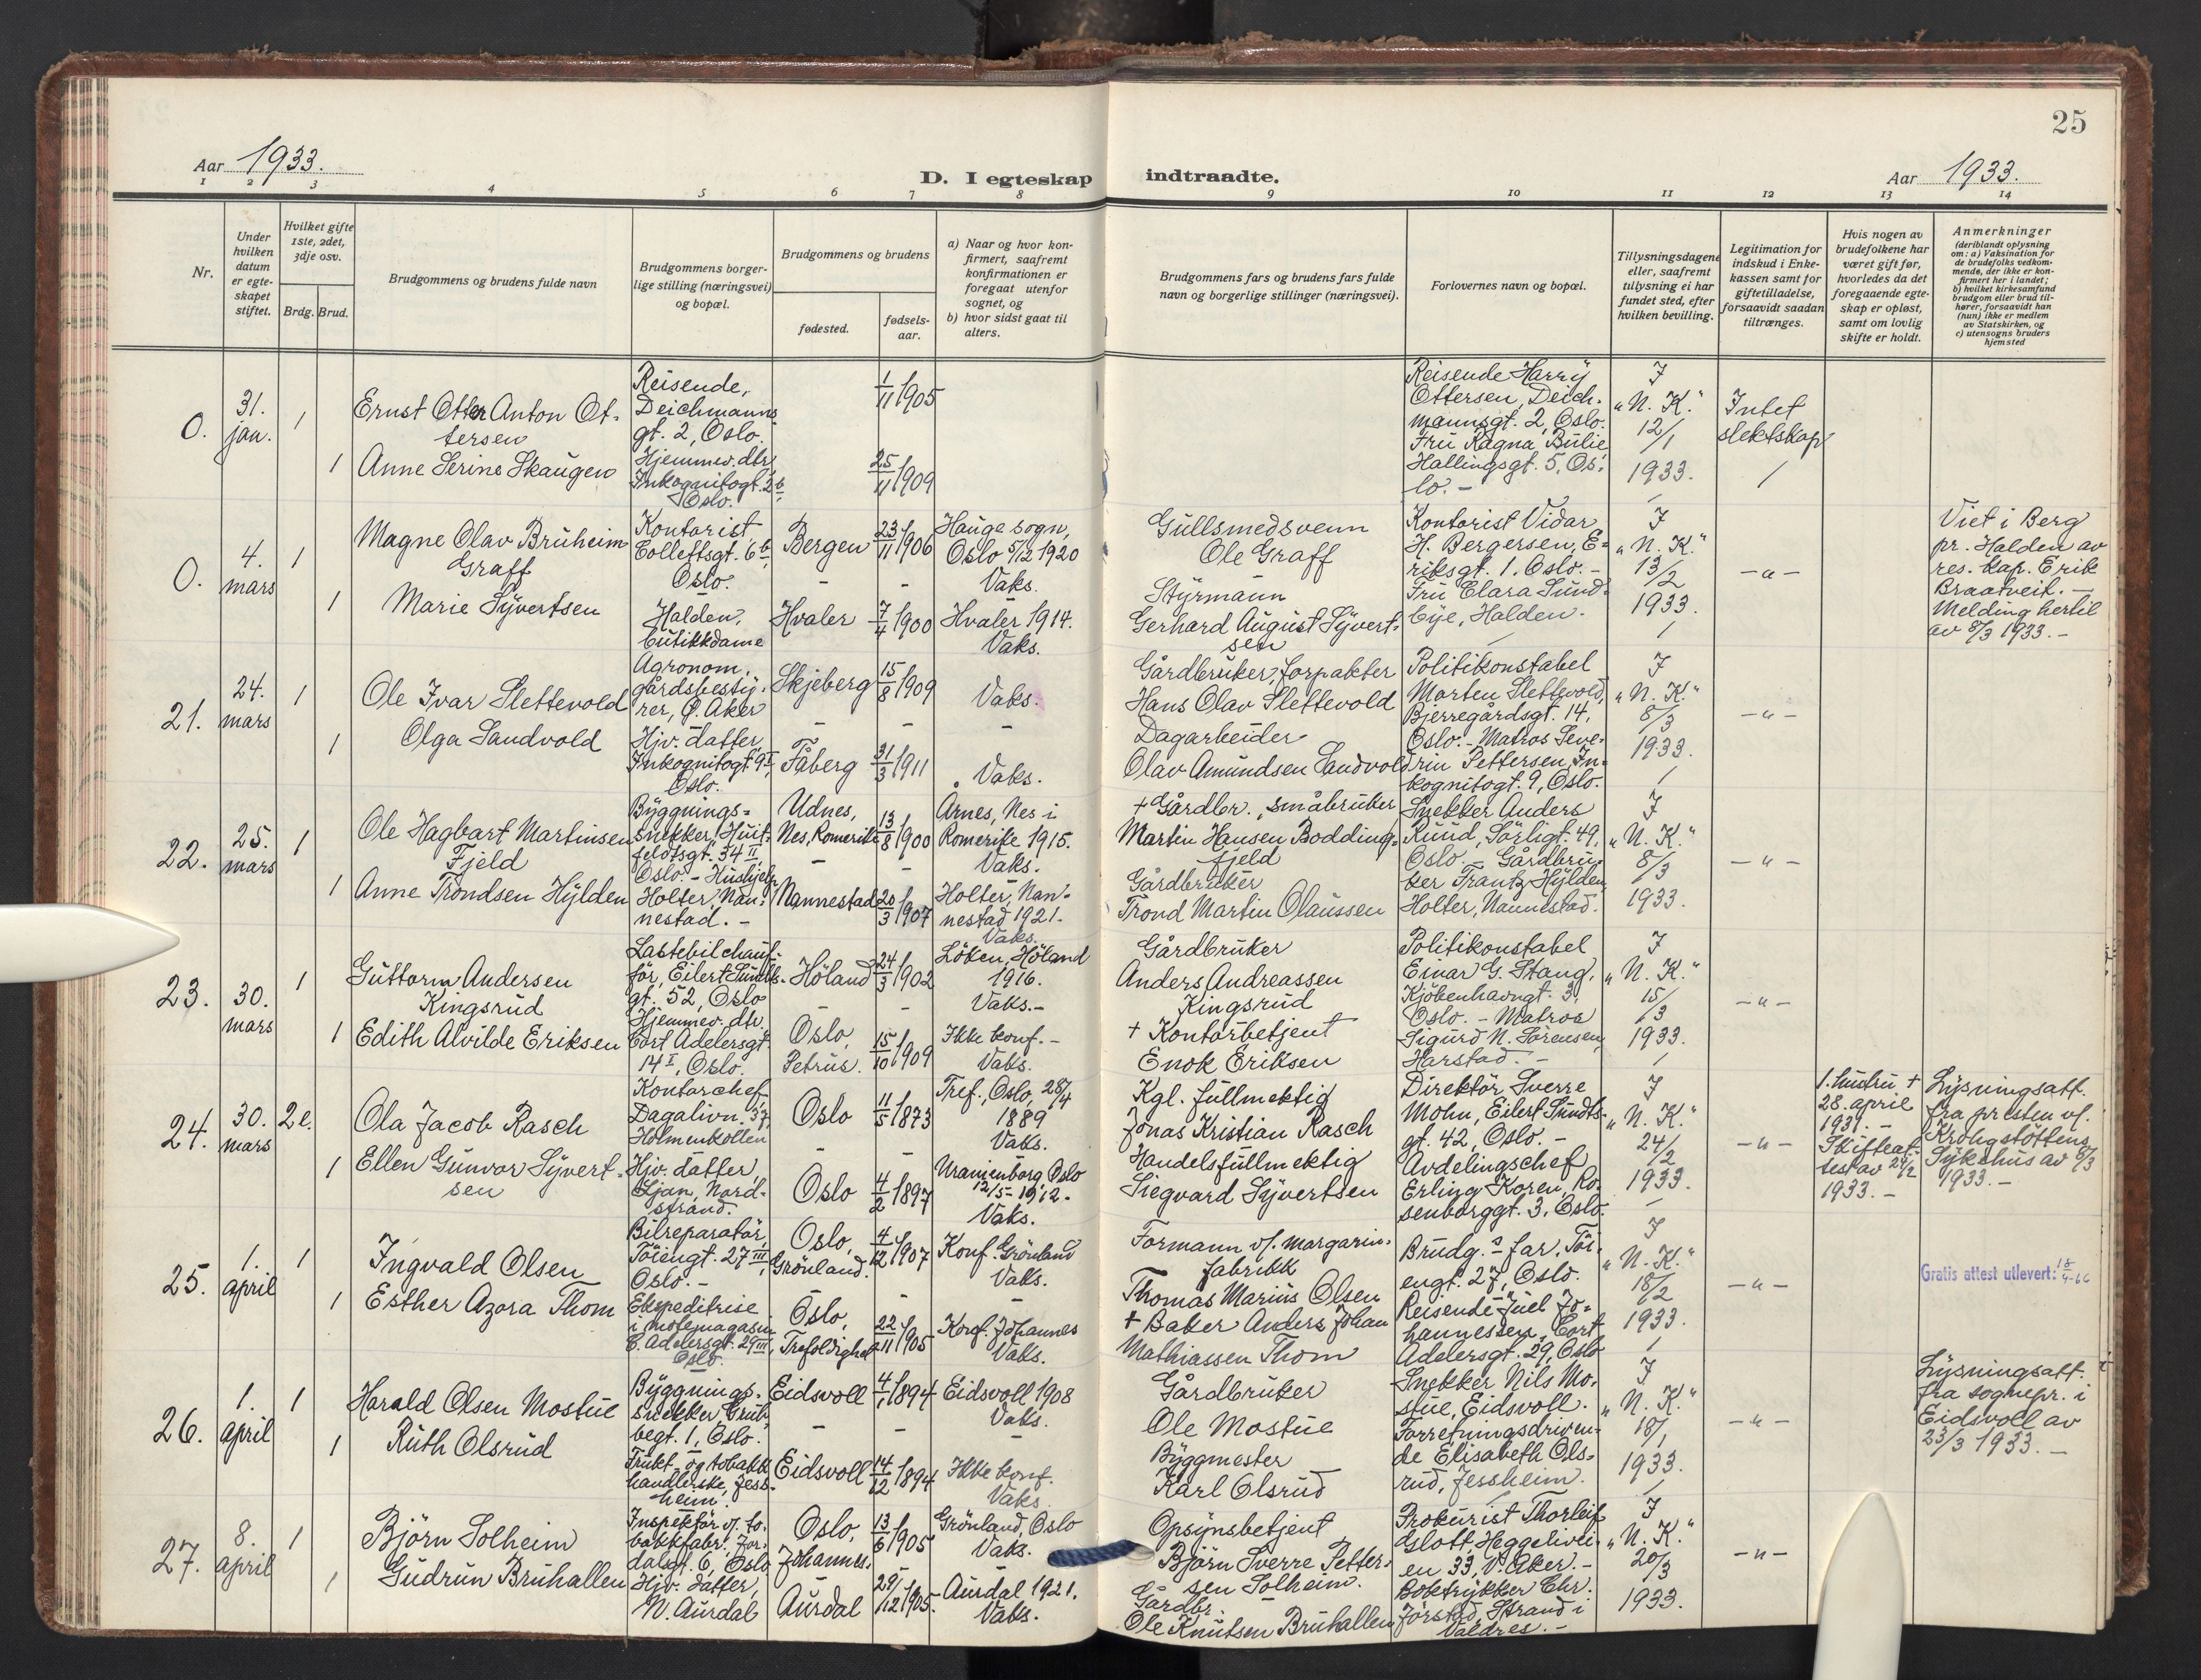 25
Aar 1933.
D. I egteskap indtraadte.
Aar 1933.
1 2 3 4 5 6 7 8 9 10 11 12 13 14
Nr.
Under hvilken datum er egte-skapet stiftet.
Hvilket gifte 1ste, 2det, 3dje osv.
Brdg. Brud.
Brudgommens og brudens fulde navn
Brudgommens borger-lige stilling (næringsvei) og bopæl.
Brudgommens og brudens
fødested.
fødsels-aar.
a) Naar og hvor kon-firmert, saafremt konfirmationen er foregaat utenfor sognet, og
b) hvor sidst gaat til alters.
Brudgommens fars og brudens fars fulde navn og borgerlige stillinger (næringsvei).
Forlovernes navn og bopæl.
Tillysningsdagene eller, saafremt tillysning ei har fundet sted, efter hvilken bevilling.
Legitimation for indskud i Enke-kassen samt for giftetilladelse, forsaavidt saadan tiltrænges.
Hvis nogen av brudefolkene har været gift før, hvorledes da det foregaaende egte-skap er opløst, samt om lovlig skifte er holdt.
Anmerkninger (deriblandt oplysning om: a) Vaksination for de brudefolks vedkom-mende, der ikke er kon-firmert her i landet; b) hvilket kirkesamfund brudgom eller brud til-hører, forsaavidt han (hun) ikke er medlem av Statskirken, og c) utensogns bruders hjemsted
0. 31. jan. 1
Ernst Otter Anton Ot-tersen
Reisende, Deichmanns gt. 2, Oslo.
1/11 1905
1 Anne Serine Skaugen
Hjemmev. dtr. Inkognitogt. 2b Oslo.
25/11 1909
Reisende Harry Ottersen, Deich-mannsgt. 2, Oslo. Fru Ragna Bülie Hallingsgt. 5, Os-lo. -
I "N. K." 12/1 1933.
Intet slektskap
0. 4. mars 1
Magne Olav Bruheim Graff
Kontorist, Collettsgt. 6b, Oslo.
Bergen 23/11 1906
Hauge sogn, Oslo 5/12 1920 Vaks.
Gullsmedsvenn Ole Graff
1 Marie Syvertsen
Halden, butikkdame
Hvaler 7/4 1900
Hvaler 1914. Vaks.
Styrmann Gerhard August Syvert-sen
Kontorist Vidar H. Bergersen, E-riksgt. 1. Oslo. - Fru Clara Sund-bye, Halden.
I "N. K." 13/2 1933.
- " -
Viet i Berg pr. Halden av res. kap. Erik Braatveit. - Melding hertil av 8/3 1933. -
21. 24. mars 1
Ole Ivar Slettevold
Agronom, gårdsbesty-rer, Ø. Aker
Skjeberg 15/8 1909
Vaks.
Gårdbruker, forpakter Hans Olav Slettevold
1 Olga Sandvold
Hjv. datter, Inkognitogt. 9I, Oslo.
Fåberg 31/3 1911
Vaks.
Dagarbeider Olav Amundsen Sandvold
Politikonstabel Morten Slettevold, Bjerregårdsgt. 14, Oslo. - Matros Seve-rin Pettersen, In-kognitogt. 9, Oslo.
I "N. K." 8/3 1933.
- " -
22. 25. mars 1
Ole Hagbart Martinsen Fjeld
Bygnings-snekker, Huit-feldtsgt. 34 II, Oslo. - Hushjelp
Udnes, Nes, Romerike 13/8 1900
Årnes, Nes i Romerike 1915. Vaks.
+ Gårdbr., småbruker Martin Hansen Bodding-fjeld
1 Anne Trondsen Hylden
Holter, Nan-nestad. -
Nannestad 20/3 1907
Holter, Nan-nestad 1921. Vaks.
Gårdbruker Trond Martin Olaussen
Snekker Anders Ruud, Sörligt. 49, Oslo. - Gårdbru-ker Frantz Hylden, Holter, Nannestad.
I "N. K." 8/3 1933.
- " -
23. 30. mars 1
Guttorm Andersen Kingsrud
Lastebilchauf-för, Eilert Sundts-gt. 52, Oslo
Höland 24/3 1902
Löken, Höland 1916. Vaks. -
Gårdbruker Anders Andreassen Kingsrud
1 Edith Alvilde Eriksen
Hjemmev. dtr. Cort Adelersgt. 14 I, Oslo.
Oslo, Petrus. 15/10 1909
Ikke konf. - Vaks.
+ Kontorbetjent Enok Eriksen
Politikonstabel Einar G. Stang, Kjöbenhavngt. 3, Oslo. - Matros Sigurd N. Sörensen, Harstad. -
I "N. K." 15/3 1933.
- " -
24. 30. mars 2e.
Ola Jacob Rasch
Kontorchef, Dagalivn. 37, Holmenkollen
Oslo 11/5 1873
Tref., Oslo, 28/4 1889 Vaks.
Kgl. fullmektig Jonas Kristian Rasch
1 Ellen Gunvor Syvert-sen
Hjv. datter, Ljan, Nord-strand.
Oslo 4/2 1897
Uranienborg, Oslo 12/5 - 1912. - Vaks.
Handelsfullmektig Siegvard Syvertsen
Direktör Sverre Mohn, Eilert Sundts-gt. 42, Oslo. - Avdelingschef Erling Koren, Ro-senborggt. 3, Oslo.
I "N. K." 24/2 1933.
- " -
1. hustru + 28. april 1931. - Skifteat-test av 24/2 1933. -
Lysningsatt. fra presten v/. Krohgstöttens Sykehus av 8/3 1933. -
25. 1. april 1
Ingvald Olsen
Bilreparatör, Töiengt. 27 III, Oslo. -
Oslo, Grönland. 4/12 1907
Konf. Grönland Vaks.
Formann v/. margarin-fabrikk Thomas Marius Olsen
1 Esther Azora Thom
Ekspeditrise i motemagasin C. Adelersgt. 29 III, Oslo.
Oslo, Trefoldighet 22/11 1905
Konf. Johannes Vaks.
+ Baker Anders Johan Mathiassen Thom
Brudg.s far, Töi-engt. 27, Oslo. Reisende Juel Jo-hannessen, Cort Adelersgt. 29, Oslo
I "N. K." 18/2 1933.
- " -
Gratis attest utlevert: 18/4-66
26. 1. april 1
Harald Olsen Mostue
Bygnings-snekker, Grub-begt. 1, Oslo.
Eidsvoll 4/1 1894
Eidsvoll 1908 Vaks.
Gårdbruker Ole Mostue
1 Ruth Olsrud
Frukt- og tobakk handlerske, Jess-heim.
Eidsvoll 14/12 1894
Ikke konf. Vaks.
Byggmester Karl Olsrud
Snekker Nils Mo-stue, Eidsvoll. Forretningsdriven-de Elisabeth Ols-rud, Jessheim.
I "N. K." 18/1 1933.
- " -
Lysningsatt. fra sognepr. i Eidsvoll av 23/3 1933. -
27. 8. april 1
Björn Solheim
Inspektör v/. to-bakkfabr. For-dalsgt. 6, Oslo
Oslo, Johannes. 13/6 1905
Grönland, Oslo Vaks.
Opsynsbetjent Björn Sverre Petter-sen Solheim.
1 Gudrun Bruhallen
Hjv. datter, N. Aurdal
Aurdal 29/12 1905.
Aurdal 1921. Vaks.
Gårdbr. Ole Knutsen Bruhallen
Prokurist Thorleif Glott, Heggelivei-en 33, V. Aker. - Boktrykker Chr. Jörstad, Strand i Valdres. -
I "N. K." 20/3 1933.
- " -